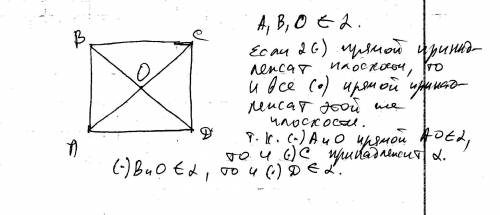 B
C
O
A
D
A, B, O ∈ α.
Если 2(·) прямой принад-
лежат плоскости, то
и все (·) прямой принад-
лежат этой же
плоскости.
Т.к. (·) A и O прямой AO ∈ α,
то и (·) C принадлежит α.
(·) B и O ∈ α, то и (·) D ∈ α.